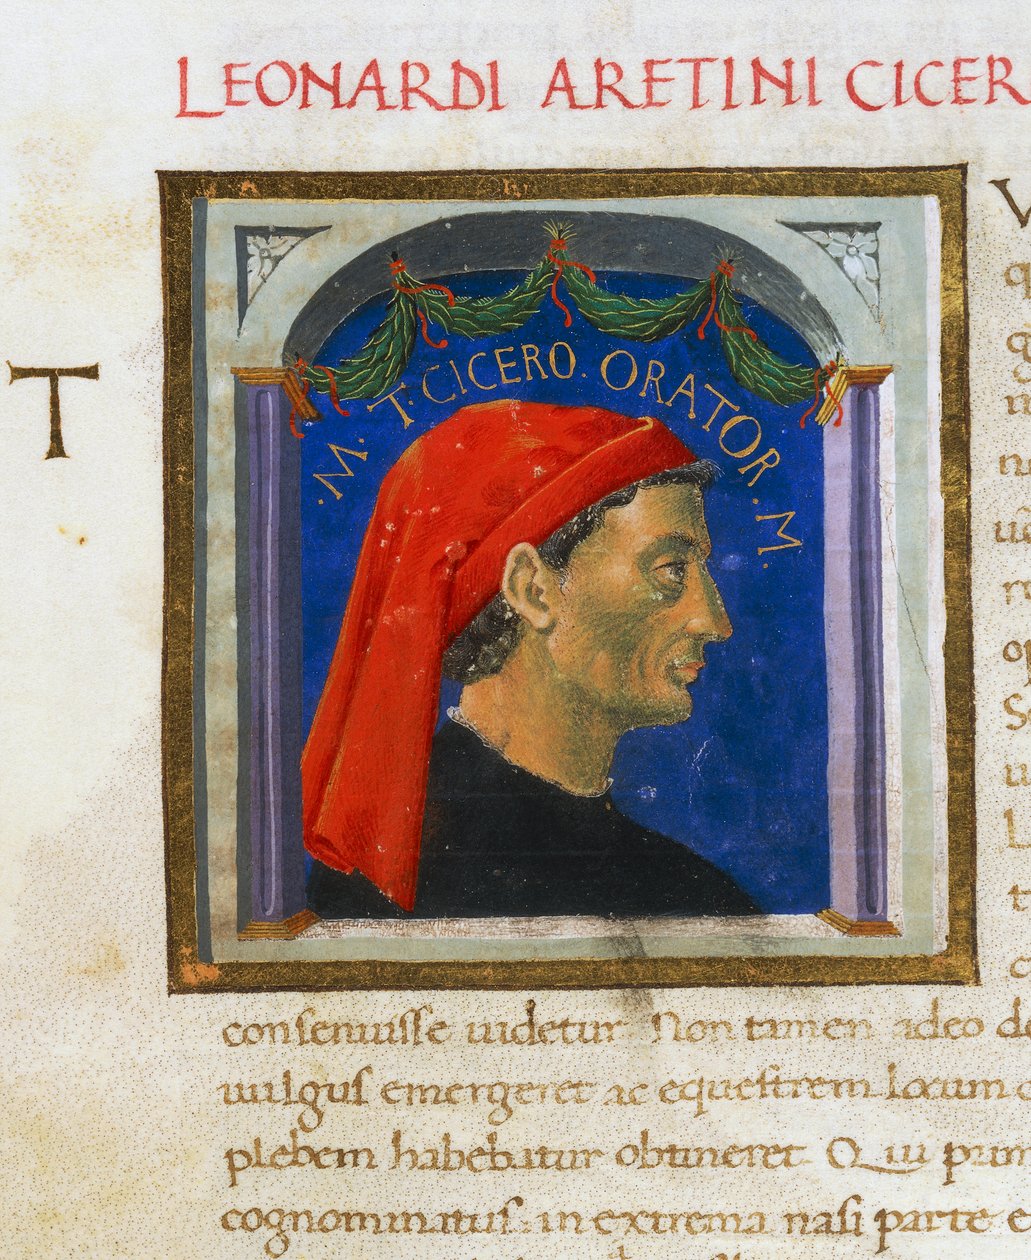 LEONARDI ARETINI CICER
T
.M.T.CICERO.ORATOR.M.
V
q
S
u
L
t
c
conſenuiſſe uidetur Non tamen adeo d
uulguſ emergeret ac equeſtrem locum
plebem habebatur obtineret. Qui prim
cognominatuſ: in extrema naſi parte e